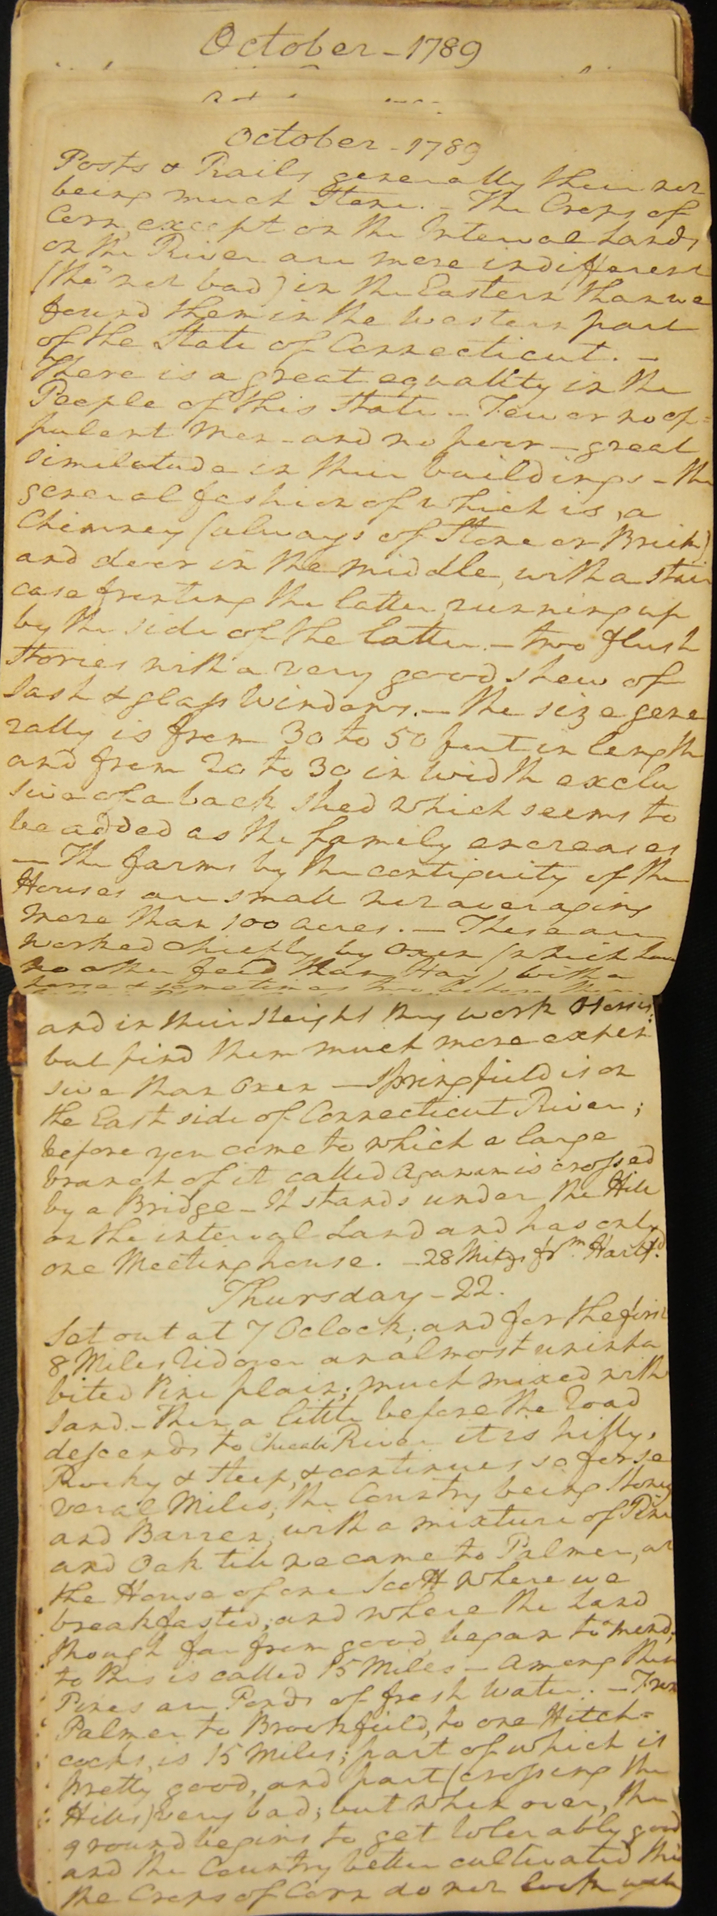 October - 1789
October - 1789
Posts & Rails generally their not
being much Stone. - The Crops of
Corn, except on the Interval Lands
on the River are more indifferent
(tho' not bad) in the Eastern than we
found them in the Western part
of the State of Connecticut. -
There is a great equality in the
People of this State - Few or no op=
pulent Men - and no poor - great
similatude in their buildings - the
general fashion of which is, a
Chimney (always of Stone or Brick)
and door in the middle, with a stair
case fronting the latter, running up
by the side of the latter. - two flush
Stories with a very good shew of
Sash & glass Windows. - the size gene
rally is from 30 to 50 feet in length
and from 20 to 30 in width exclu
sive of a back shed which seems to
be added as the family encreases
- The farms by the contiguity of the
Houses are small not averaging
more than 100 acres. - These are
worked chiefly by Oxen (which have
no other feed than Hay) with a
horse & sometimes two before them
and in their Sleighs they work Horses,
but find them much more expen
sive than Oxen - Springfield is on
the East side of Connecticut River;
before you come to which a large
branch of it called Agawam is crossed
by a Bridge - It stands under the Hill
on the interval Land and has only
one Meeting house. - 28 Miles frm Hartfd.
Thursday - 22.
Set out at 7 Oclock; and for the first
8 Miles rid over an almost uninha
bited Pine plain; much mixed with
Sand. - Then a little before the road
descends to Chicabi River it is hilly,
Rocky & Steep, & continues so for se
veral Miles; the Country being Stony
and Barren; with a mixture of Pine
and Oak till we came to Palmer, at
the House of one Scott where we
breakfasted; and where the Land
though far from good, began to mend;
to this is called 15 Miles - among these
Pines are Ponds of fresh Water. - From
Palmer to Brookfield, to one Hitch=
cocks, is 15 Miles; part of which is
pretty good, and part (crossing the
Hills) very bad; but when over, the
ground begins to get tolerably good
and the Country better cultivated tho'
the Crops of Corn do not look well